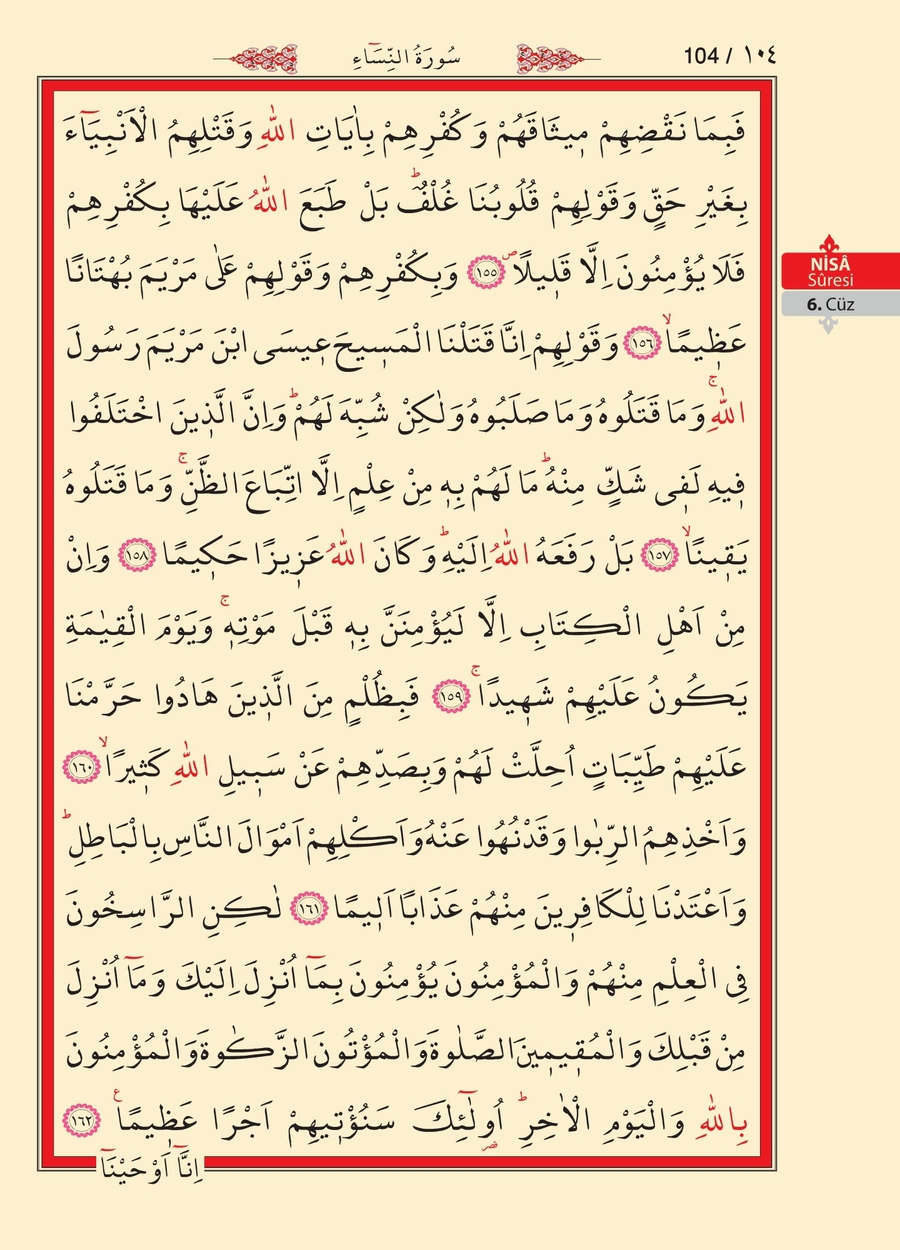 104 / ١٠٤
سُورَةُ النِّسَٓاءِ
فَبِمَا نَقْضِهِمْ م۪يثَاقَهُمْ وَكُفْرِهِمْ بِاٰيَاتِ اللّٰهِ وَقَتْلِهِمُ الْاَنْبِيَٓاءَ
بِغَيْرِ حَقٍّ وَقَوْلِهِمْ قُلُوبُنَا غُلْفٌۜ بَلْ طَبَعَ اللّٰهُ عَلَيْهَا بِكُفْرِهِمْ
فَلَا يُؤْمِنُونَ اِلَّا قَل۪يلًاۖ ﴿١٥٥﴾ وَبِكُفْرِهِمْ وَقَوْلِهِمْ عَلٰى مَرْيَمَ بُهْتَانًا
عَظ۪يمًاۙ ﴿١٥٦﴾ وَقَوْلِهِمْ اِنَّا قَتَلْنَا الْمَس۪يحَ ع۪يسَى ابْنَ مَرْيَمَ رَسُولَ
اللّٰهِۚ وَمَا قَتَلُوهُ وَمَا صَلَبُوهُ وَلٰكِنْ شُبِّهَ لَهُمْۜ وَاِنَّ الَّذ۪ينَ اخْتَلَفُوا
ف۪يهِ لَف۪ي شَكٍّ مِنْهُۜ مَا لَهُمْ بِه۪ مِنْ عِلْمٍ اِلَّا اتِّبَاعَ الظَّنِّۚ وَمَا قَتَلُوهُ
يَق۪ينًاۙ ﴿١٥٧﴾ بَلْ رَفَعَهُ اللّٰهُ اِلَيْهِۜ وَكَانَ اللّٰهُ عَز۪يزًا حَك۪يمًا ﴿١٥٨﴾ وَاِنْ
مِنْ اَهْلِ الْكِتَابِ اِلَّا لَيُؤْمِنَنَّ بِه۪ قَبْلَ مَوْتِه۪ۚ وَيَوْمَ الْقِيٰمَةِ
يَكُونُ عَلَيْهِمْ شَه۪يدًاۚ ﴿١٥٩﴾ فَبِظُلْمٍ مِنَ الَّذ۪ينَ هَادُوا حَرَّمْنَا
عَلَيْهِمْ طَيِّبَاتٍ اُحِلَّتْ لَهُمْ وَبِصَدِّهِمْ عَنْ سَب۪يلِ اللّٰهِ كَث۪يرًاۙ ﴿١٦٠﴾
وَاَخْذِهِمُ الرِّبٰوا وَقَدْ نُهُوا عَنْهُ وَاَكْلِهِمْ اَمْوَالَ النَّاسِ بِالْبَاطِلِۜ
وَاَعْتَدْنَا لِلْكَافِر۪ينَ مِنْهُمْ عَذَابًا اَل۪يمًا ﴿١٦١﴾ لٰكِنِ الرَّاسِخُونَ
فِي الْعِلْمِ مِنْهُمْ وَالْمُؤْمِنُونَ يُؤْمِنُونَ بِمَٓا اُنْزِلَ اِلَيْكَ وَمَٓا اُنْزِلَ
مِنْ قَبْلِكَ وَالْمُق۪يم۪ينَ الصَّلٰوةَ وَالْمُؤْتُونَ الزَّكٰوةَ وَالْمُؤْمِنُونَ
بِاللّٰهِ وَالْيَوْمِ الْاٰخِرِۜ اُو۬لٰٓئِكَ سَنُؤْت۪يهِمْ اَجْرًا عَظ۪يمًاۧ ﴿١٦٢﴾
اِنَّٓا اَوْحَيْنَٓا
NİSÂ
Sûresi
6. Cüz